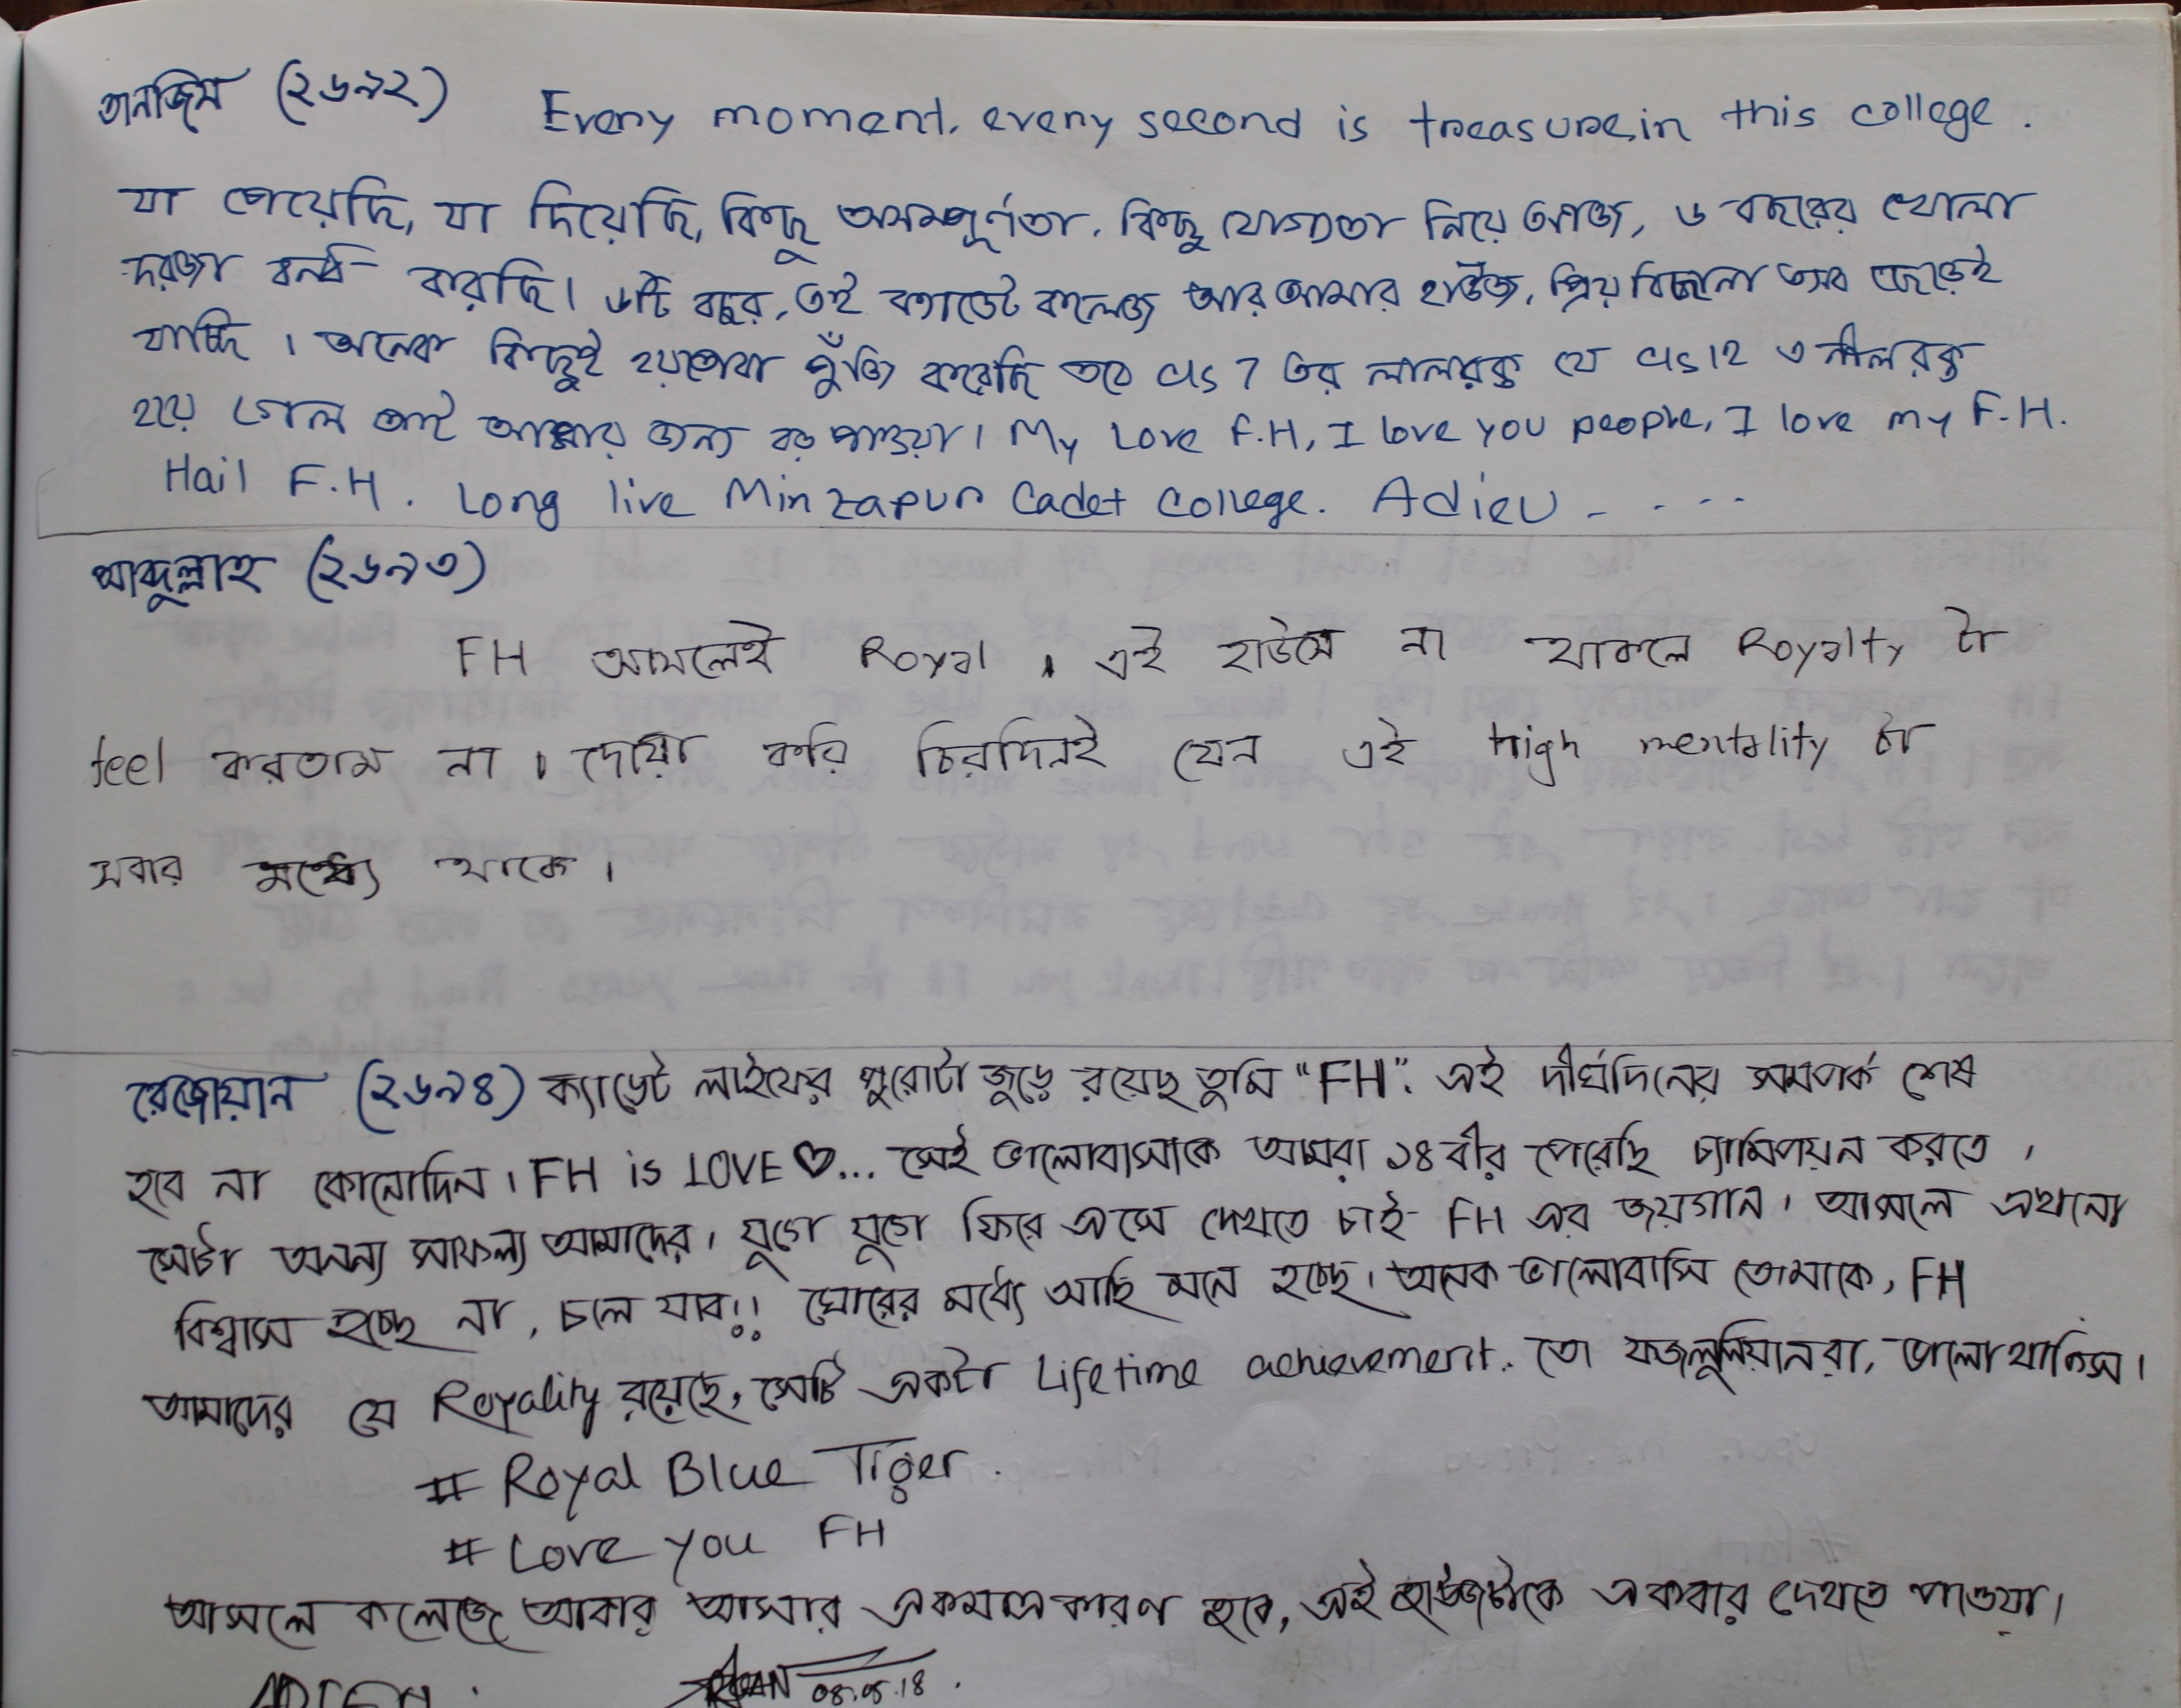 তানজিম (২৬৯২) Every moment, every second is treasure in this college.
যা পেয়েছি, যা দিয়েছি, কিছু অসম্পূর্ণতা, কিছু যোগ্যতা নিয়ে আজ, ৬ বছরের খোলা
দরজা বন্ধ করছি। ৬টি বছর, এই ক্যাডেট কলেজ আর আমার হাউজ, প্রিয় বিছানা সব ছেড়েই
যাচ্ছি। অনেক কিছুই হয়তোবা পুঁজি করেছি তবে cls 7 এর লালরক্ত যে cls 12 এ নীলরক্ত
হয়ে গেল তাই আমার জন্য বড় পাওয়া। My Love F.H, I love you people, I love my F.H.
Hail F.H. Long live Mirzapur Cadet College. Adieu - . . . .
আব্দুল্লাহ (২৬৯৩)
FH আসলেই Royal। এই হাউসে না থাকলে Royalty টা
feel করতাম না। দোয়া করি চিরদিনই যেন এই high mentality টা
সবার মধ্যে থাকে।
রেজোয়ান (২৬৯৪) ক্যাডেট লাইফের পুরোটা জুড়ে রয়েছ তুমি "FH". এই দীর্ঘদিনের সম্পর্ক শেষ
হবে না কোনোদিন। FH is LOVE ♡... সেই ভালোবাসাকে আমরা ১৪ বীর পেরেছি চ্যাম্পিয়ন করতে।
সেটা অনন্য সাফল্য আমাদের। যুগে যুগে ফিরে এসে দেখতে চাই FH এর জয়গান। আসলে এখনো
বিশ্বাস হচ্ছে না, চলে যাব!! ঘোরের মধ্যে আছি মনে হচ্ছে। অনেক ভালোবাসি তোমাকে, FH
আমাদের যে Royality রয়েছে, সেটি একটা Lifetime achievement. তো ফজলুলিয়ানরা, ভালো থাকিস।
# Royal Blue Tiger.
# Love you FH
আসলে কলেজে আবার আসার একমাত্র কারণ হবে, এই হাউজটাকে একবার দেখতে পাওয়া।
08.05.18.